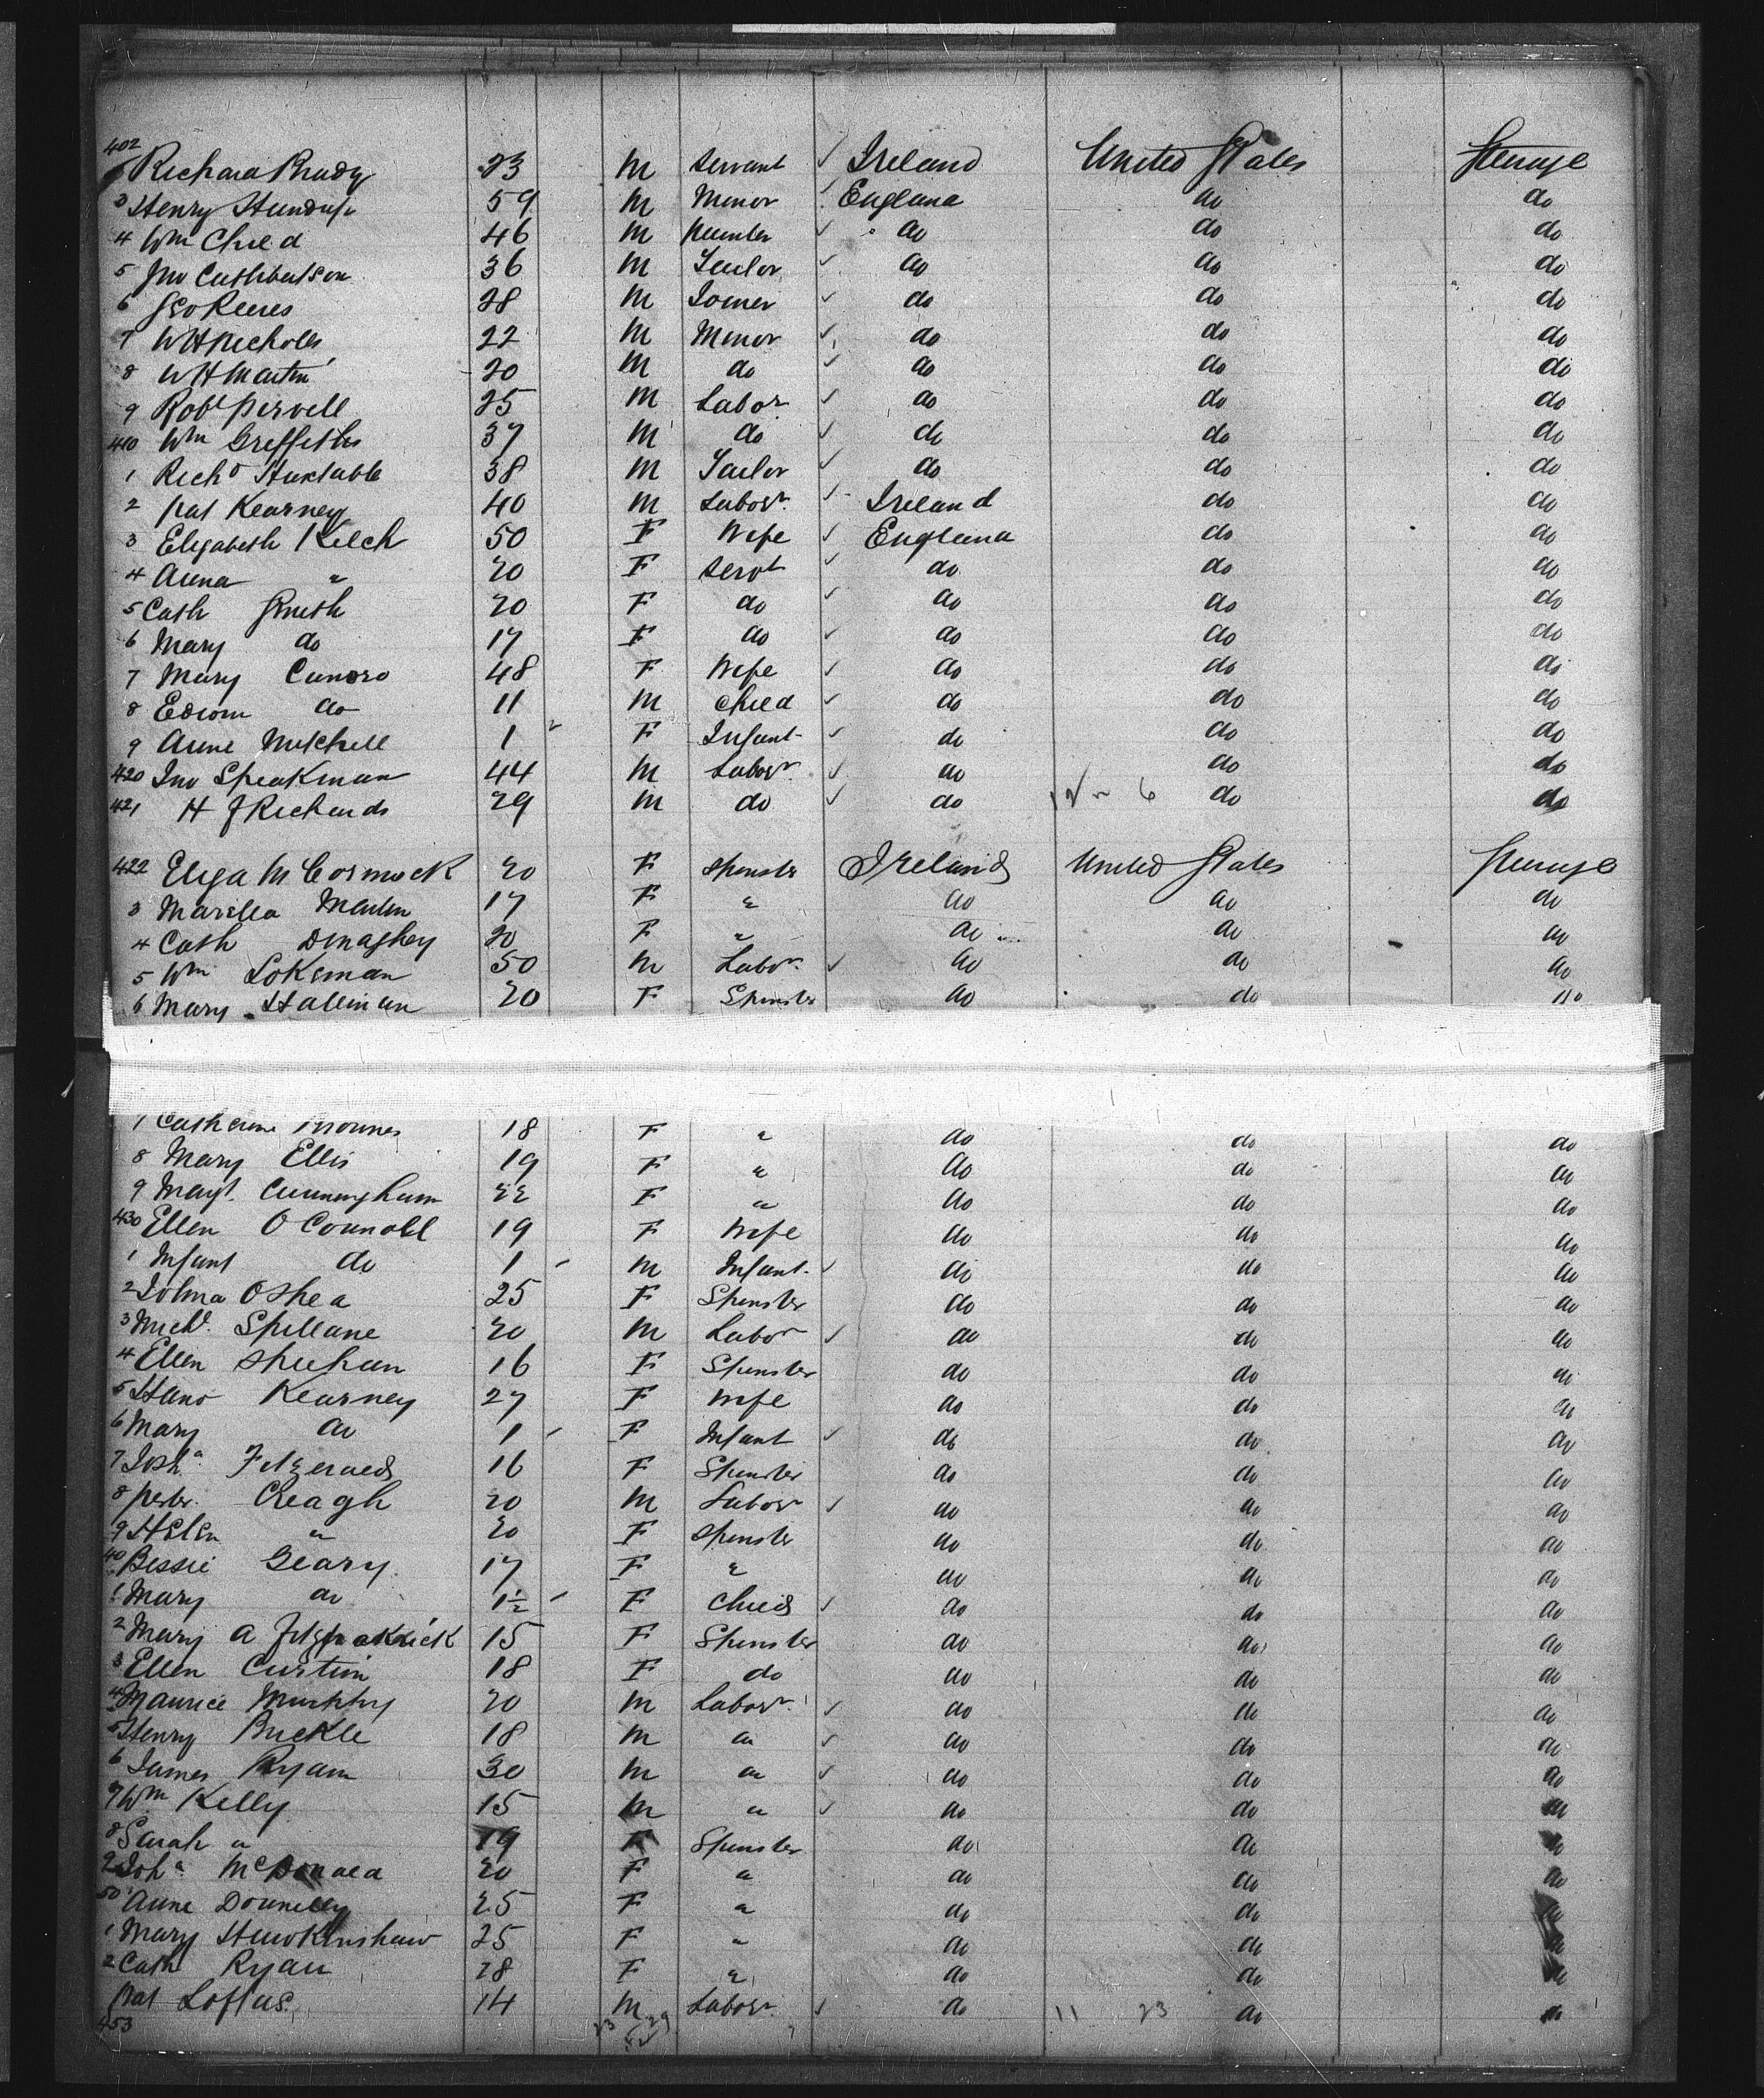 402 Richard Brady 23 M Servant ✓ Ireland United States Steerage
3 Henry 59 M Minor ✓ England do do
4 Wm Child 46 M Plumber ✓ do do do
5 Jno Cuthbertson 36 M Tailor ✓ do do do
6 Geo Reeves 28 M Joiner ✓ do do do
7 W H Nicholls 22 M Minor ✓ do do do
8 W H Martin 20 M do ✓ do do do
9 Robt 25 M Labor ✓ do do do
410 Wm Griffiths 37 M do ✓ do do do
1 Richd Huxtable 38 M Tailor ✓ do do do
2 Pat Kearney 40 M Labor ✓ Ireland do do
3 Elizabeth 50 F Wife ✓ England do do
4 Anna " 20 F Servt ✓ do do do
5 Cath Smith 20 F do ✓ do do do
6 Mary do 17 F do ✓ do do do
7 Mary 48 F Wife ✓ do do do
8 Edwin do 11 M Child ✓ do do do
9 Anne Mitchell 1 F Infant ✓ do do do
420 Jno Speakman 44 M Labor ✓ do do do
421 H J Richards 29 M do ✓ do 6 do do
422 Eliza McCormack 20 F Spinster Ireland United States Steerage
3 Martin 17 F " do do do
4 Cath 20 F " do do do
5 Wm 50 M Labor ✓ do do do
6 Mary Hallinan 20 F Spinster do do do
7 Catherine 18 F " do do do
8 Mary Ellis 19 F " do do do
9 Margt Cunningham 22 F " do do do
430 Ellen O Connell 19 F Wife do do do
1 Infant do 1 M Infant ✓ do do do
2 O Shea 25 F Spinster do do do
3 Michl Spillane 20 M Labor ✓ do do do
4 Ellen Sheehan 16 F Spinster do do do
5 Kearney 27 F Wife do do do
6 Mary do 1 F Infant ✓ do do do
7 Fitzgerald 16 F Spinster do do do
8 Peter Creagh 20 M Labor ✓ do do do
9 Helen " 20 F Spinster do do do
40 Bessie Geary 17 F " do do do
1 Mary do 1½ F Child ✓ do do do
2 Mary A Fitzpatrick 15 F Spinster do do do
3 Ellen Curtin 18 F do do do do
4 Maurice Murphy 20 M Labor ✓ do do do
5 Henry Buckle 18 M " ✓ do do do
6 James Ryan 30 M " ✓ do do do
7 Wm Kelly 15 M " ✓ do do do
8 Sarah " 19 F Spinster do do do
9 Joha McDonald 20 F " do do do
50 Anne Donnelly 25 F " do do do
1 Mary Hawkinshaw 25 F " do do do
2 Cath Ryan 28 F " do do do
453 Pat Loftus 14 M Labor ✓ do 11 23 do do
23 29